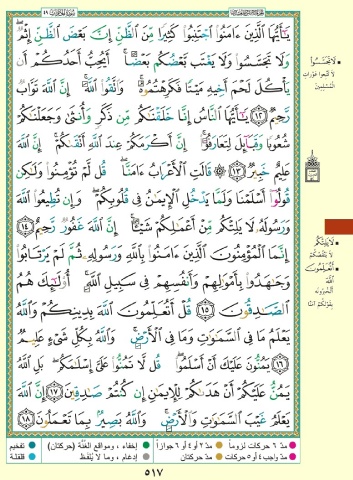 سُورَةُ الحُجُرَات ٤٩
يَٰٓأَيُّهَا ٱلَّذِينَ ءَامَنُوا۟ ٱجْتَنِبُوا۟ كَثِيرًا مِّنَ ٱلظَّنِّ إِنَّ بَعْضَ ٱلظَّنِّ إِثْمٌ ۖ
وَلَا تَجَسَّسُوا۟ وَلَا يَغْتَب بَّعْضُكُم بَعْضًا ۚ أَيُحِبُّ أَحَدُكُمْ أَن
يَأْكُلَ لَحْمَ أَخِيهِ مَيْتًا فَكَرِهْتُمُوهُ ۚ وَٱتَّقُوا۟ ٱللَّهَ ۚ إِنَّ ٱللَّهَ تَوَّابٌ
رَّحِيمٌ ١٢ يَٰٓأَيُّهَا ٱلنَّاسُ إِنَّا خَلَقْنَٰكُم مِّن ذَكَرٍ وَأُنثَىٰ وَجَعَلْنَٰكُمْ
شُعُوبًا وَقَبَآئِلَ لِتَعَارَفُوٓا۟ ۚ إِنَّ أَكْرَمَكُمْ عِندَ ٱللَّهِ أَتْقَىٰكُمْ ۚ إِنَّ ٱللَّهَ
عَلِيمٌ خَبِيرٌ ١٣ ۞ قَالَتِ ٱلْأَعْرَابُ ءَامَنَّا ۖ قُل لَّمْ تُؤْمِنُوا۟ وَلَٰكِن
قُولُوٓا۟ أَسْلَمْنَا وَلَمَّا يَدْخُلِ ٱلْإِيمَٰنُ فِى قُلُوبِكُمْ ۖ وَإِن تُطِيعُوا۟ ٱللَّهَ
وَرَسُولَهُۥ لَا يَلِتْكُم مِّنْ أَعْمَٰلِكُمْ شَيْـًٔا ۚ إِنَّ ٱللَّهَ غَفُورٌ رَّحِيمٌ ١٤
إِنَّمَا ٱلْمُؤْمِنُونَ ٱلَّذِينَ ءَامَنُوا۟ بِٱللَّهِ وَرَسُولِهِۦ ثُمَّ لَمْ يَرْتَابُوا۟
وَجَٰهَدُوا۟ بِأَمْوَٰلِهِمْ وَأَنفُسِهِمْ فِى سَبِيلِ ٱللَّهِ ۚ أُو۟لَٰٓئِكَ هُمُ
ٱلصَّٰدِقُونَ ١٥ قُلْ أَتُعَلِّمُونَ ٱللَّهَ بِدِينِكُمْ وَٱللَّهُ
يَعْلَمُ مَا فِى ٱلسَّمَٰوَٰتِ وَمَا فِى ٱلْأَرْضِ ۚ وَٱللَّهُ بِكُلِّ شَىْءٍ عَلِيمٌ
١٦ يَمُنُّونَ عَلَيْكَ أَنْ أَسْلَمُوا۟ ۖ قُل لَّا تَمُنُّوا۟ عَلَىَّ إِسْلَٰمَكُم ۖ بَلِ ٱللَّهُ
يَمُنُّ عَلَيْكُمْ أَنْ هَدَىٰكُمْ لِلْإِيمَٰنِ إِن كُنتُمْ صَٰدِقِينَ ١٧ إِنَّ ٱللَّهَ
يَعْلَمُ غَيْبَ ٱلسَّمَٰوَٰتِ وَٱلْأَرْضِ ۚ وَٱللَّهُ بَصِيرٌۢ بِمَا تَعْمَلُونَ ١٨
لَا تَجَسَّسُوا
لا تتبعوا عورات
المسلمين
لَا يَلِتْكُم
لا ينقصكم
أَتُعَلِّمُونَ
الله
أتخبرونه
بقولكم آمنا
مدّ ٦ حركات لزوماً مدّ ٢ أو ٤ أو ٦ جوازاً إخفاء، ومواقع الغُنَّة (حركتان) تفخيم
مدّ واجب ٤ أو ٥ حركات مدّ حركتان إدغام، وما لا يُلفَظ قلقلة
٥١٧